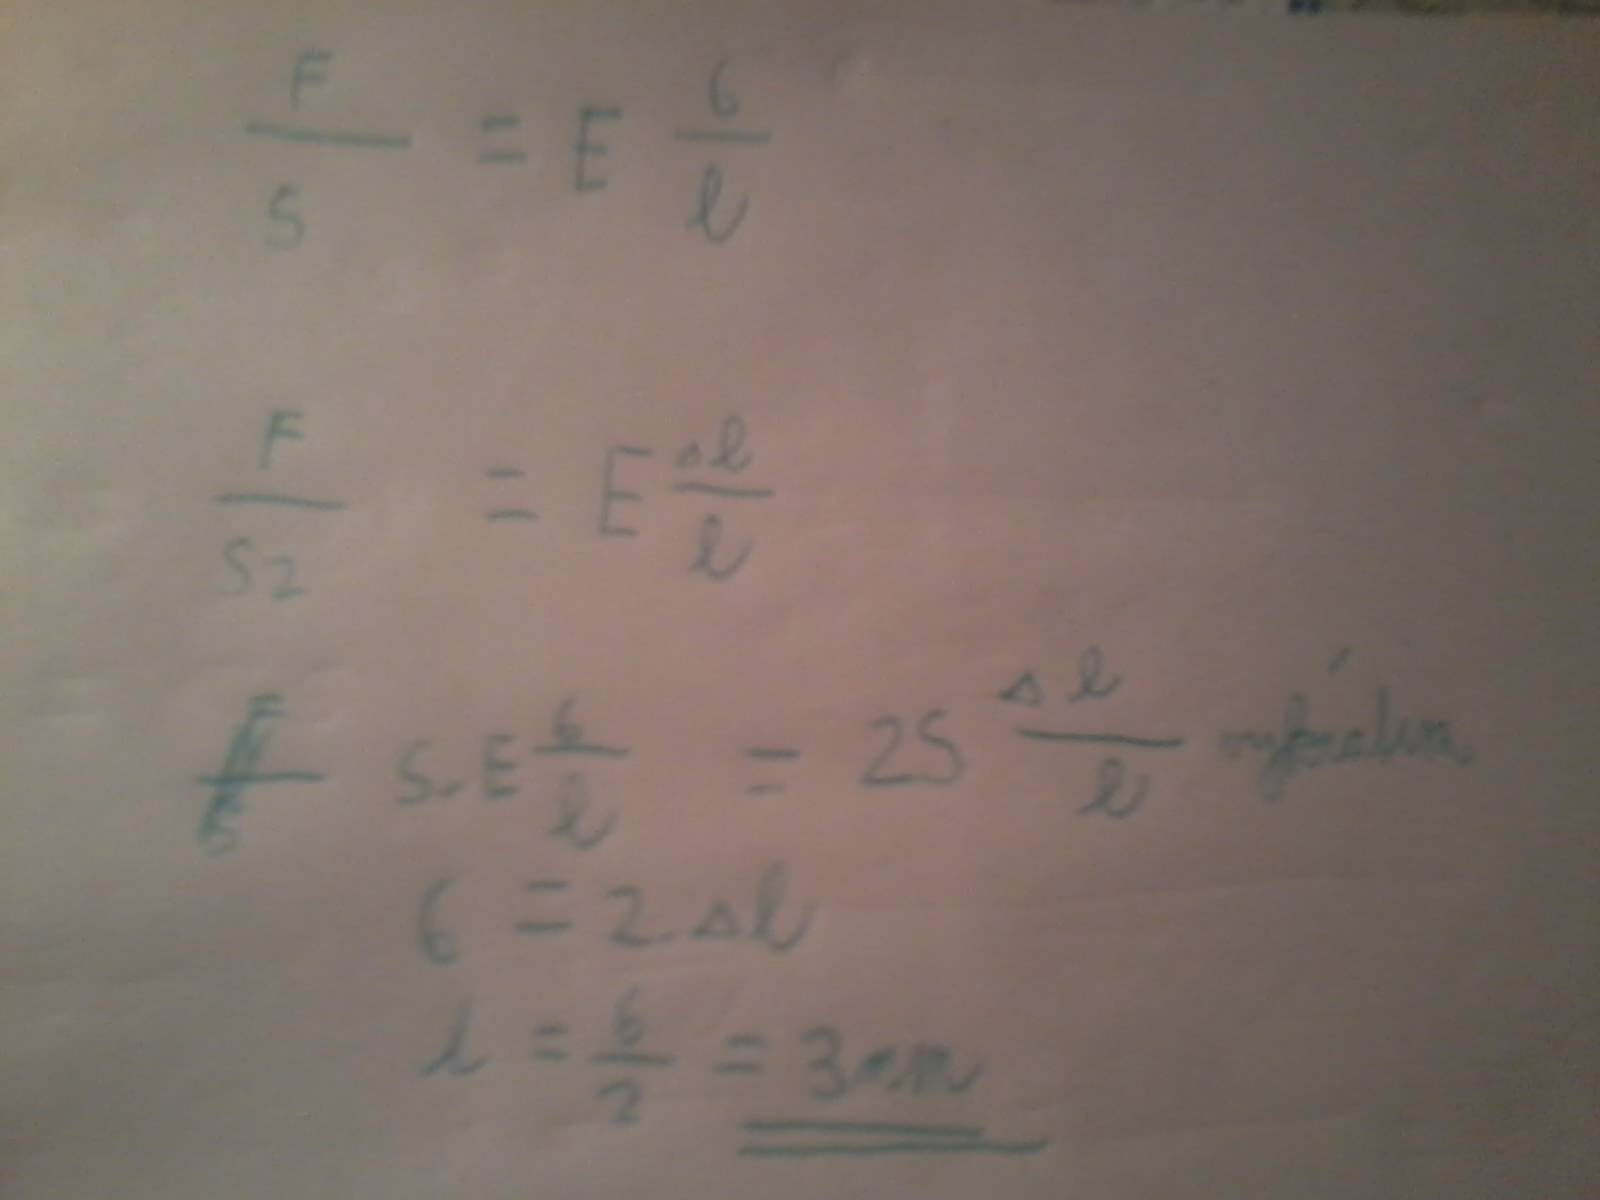 F/S = E 6/l
F/S2 = E Δl/l
S.E 6/l = 2S Δl/l
6 = 2 Δl
l = 6/2 = 3mm